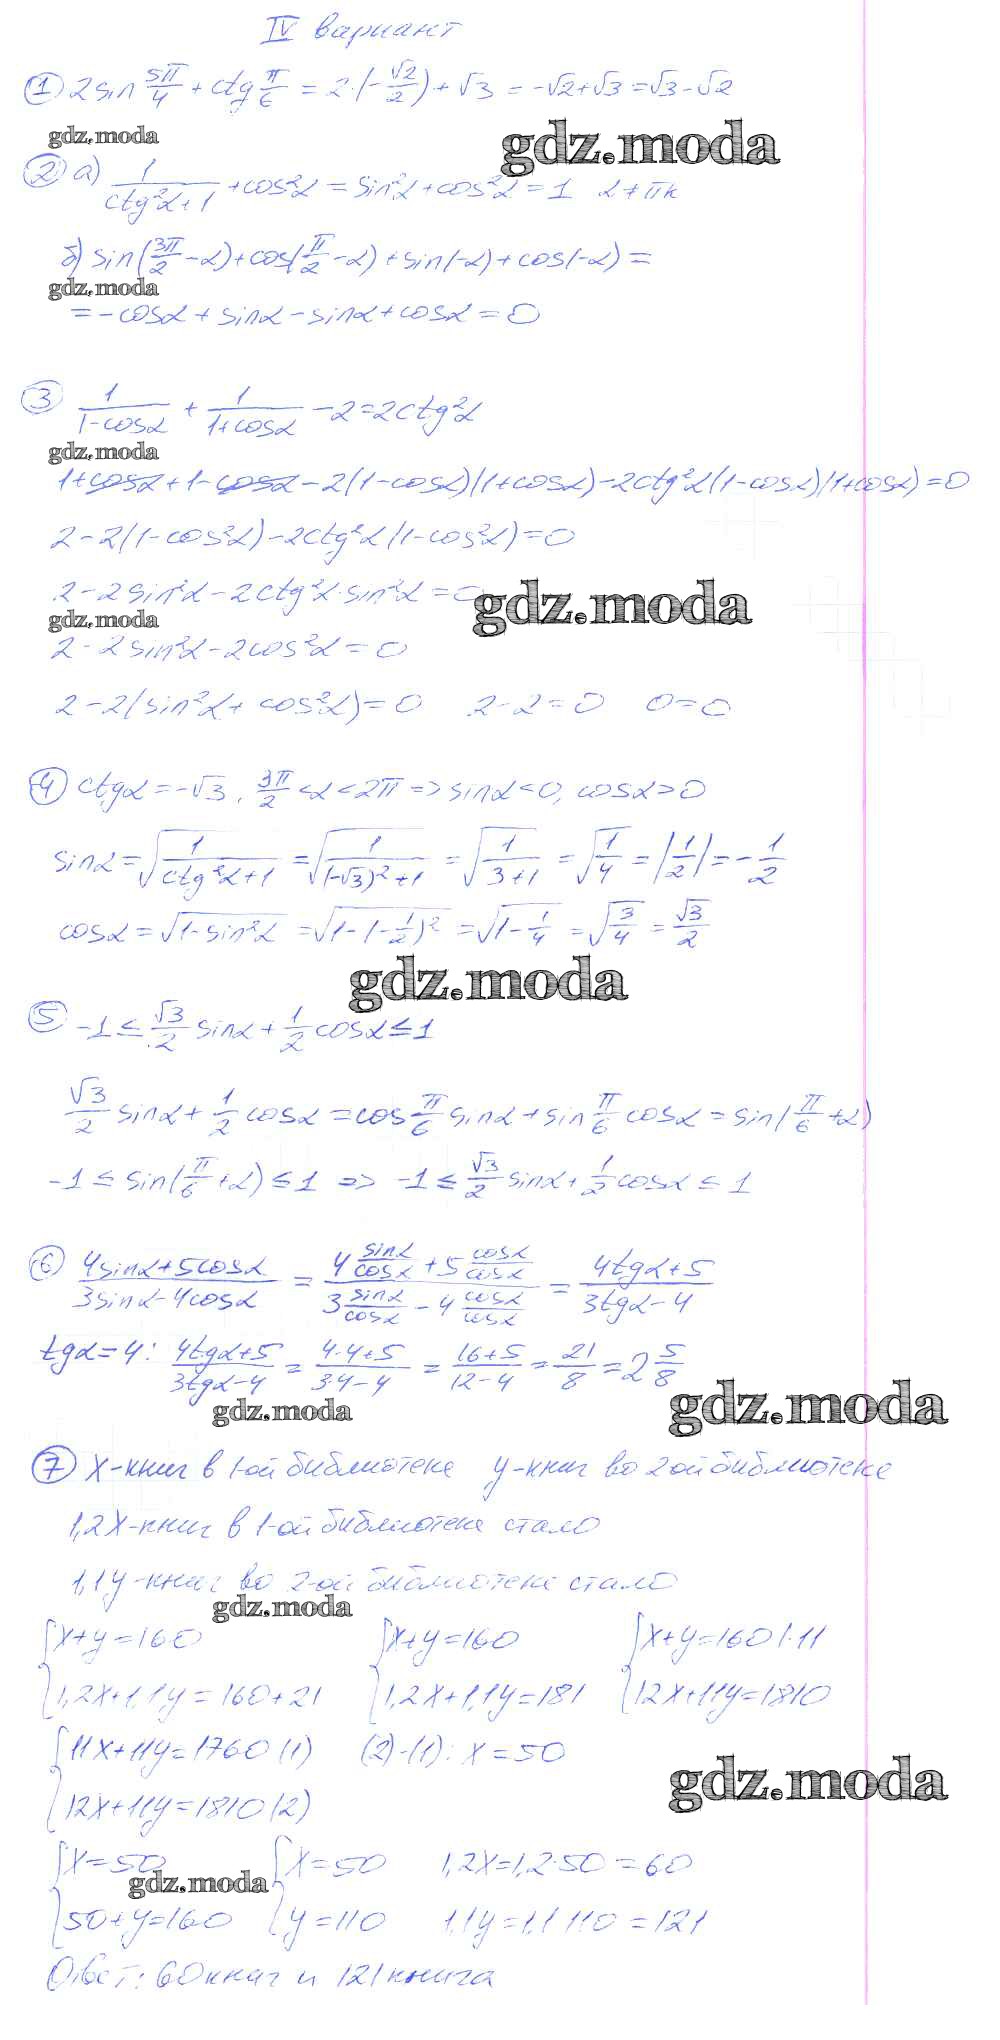 IV вариант
① 2sin 5π/4 + ctg π/6 = 2·(-√2/2) + √3 = -√2+√3 = √3-√2
gdz.moda
gdz.moda
② а) 1/(ctg²α+1) + cos²α = sin²α + cos²α = 1   α ≠ πk
б) sin(3π/2 - α) + cos(π/2 - α) + sin(-α) + cos(-α) =
gdz.moda
= -cosα + sinα - sinα + cosα = 0
③ 1/(1-cosα) + 1/(1+cosα) - 2 = 2ctg²α
gdz.moda
1+cosα+1-cosα-2(1-cosα)(1+cosα)-2ctg²α(1-cosα)(1+cosα)=0
2-2(1-cos²α)-2ctg²α(1-cos²α)=0
2-2sin²α-2ctg²α·sin²α=0
gdz.moda
gdz.moda
2-2sin²α-2cos²α=0
2-2(sin²α+cos²α)=0   2-2=0   0=0
④ ctgα=-√3, 3π/2<α<2π => sinα<0, cosα>0
sinα=√(1/(ctg²α+1)) = √(1/((-√3)²+1)) = √(1/(3+1)) = √(1/4) = |1/2| = -1/2
cosα=√(1-sin²α) = √(1-(-1/2)²) = √(1-1/4) = √(3/4) = √3/2
gdz.moda
⑤ -1 ≤ √3/2 sinα + 1/2 cosα ≤ 1
√3/2 sinα + 1/2 cosα = cos π/6 sinα + sin π/6 cosα = sin(π/6 + α)
-1 ≤ sin(π/6 + α) ≤ 1 => -1 ≤ √3/2 sinα + 1/2 cosα ≤ 1
⑥ (4sinα+5cosα)/(3sinα-4cosα) = (4 sinα/cosα + 5 cosα/cosα)/(3 sinα/cosα - 4 cosα/cosα) = (4tgα+5)/(3tgα-4)
tgα=4: (4tgα+5)/(3tgα-4) = (4·4+5)/(3·4-4) = (16+5)/(12-4) = 21/8 = 2 5/8
gdz.moda
gdz.moda
⑦ x-книг в 1-ой библиотеке   y-книг во 2ой библиотеке
1,2x-книг в 1-ой библиотеке стало
1,1y-книг во 2-ой библиотеке стало
gdz.moda
{x+y=160   {x+y=160   {x+y=160 |·11
{1,2x+1,1y=160+21   {1,2x+1,1y=181   {12x+11y=1810
{11x+11y=1760 (1)   (2)-(1): x=50
gdz.moda
{12x+11y=1810 (2)
{x=50   {x=50   1,2x=1,2·50=60
gdz.moda
{50+y=160   {y=110   1,1y=1,1·110=121
Ответ: 60 книг и 121 книга